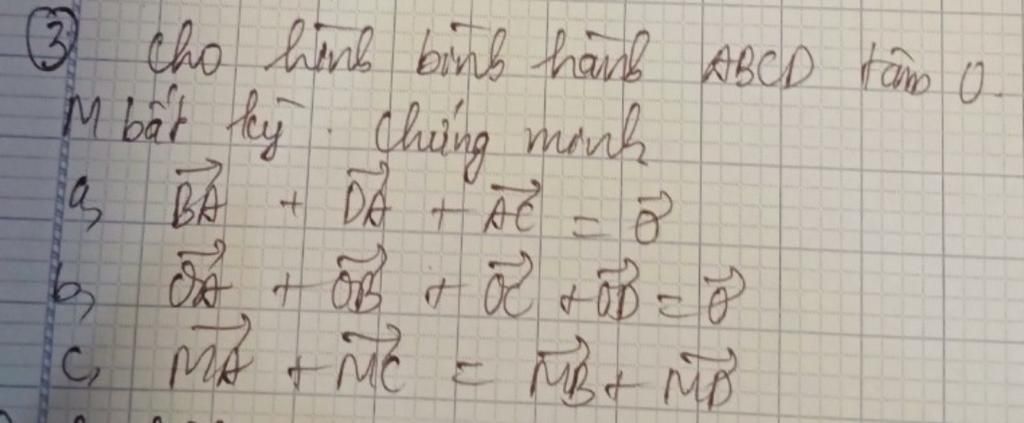 ③ Cho hình bình hành ABCD tâm O.
M bất kỳ. Chứng minh
a, $\overrightarrow{BA} + \overrightarrow{DA} + \overrightarrow{AC} = \vec{0}$
b, $\overrightarrow{OA} + \overrightarrow{OB} + \overrightarrow{OC} + \overrightarrow{OD} = \vec{0}$
c, $\overrightarrow{MA} + \overrightarrow{MC} = \overrightarrow{MB} + \overrightarrow{MD}$